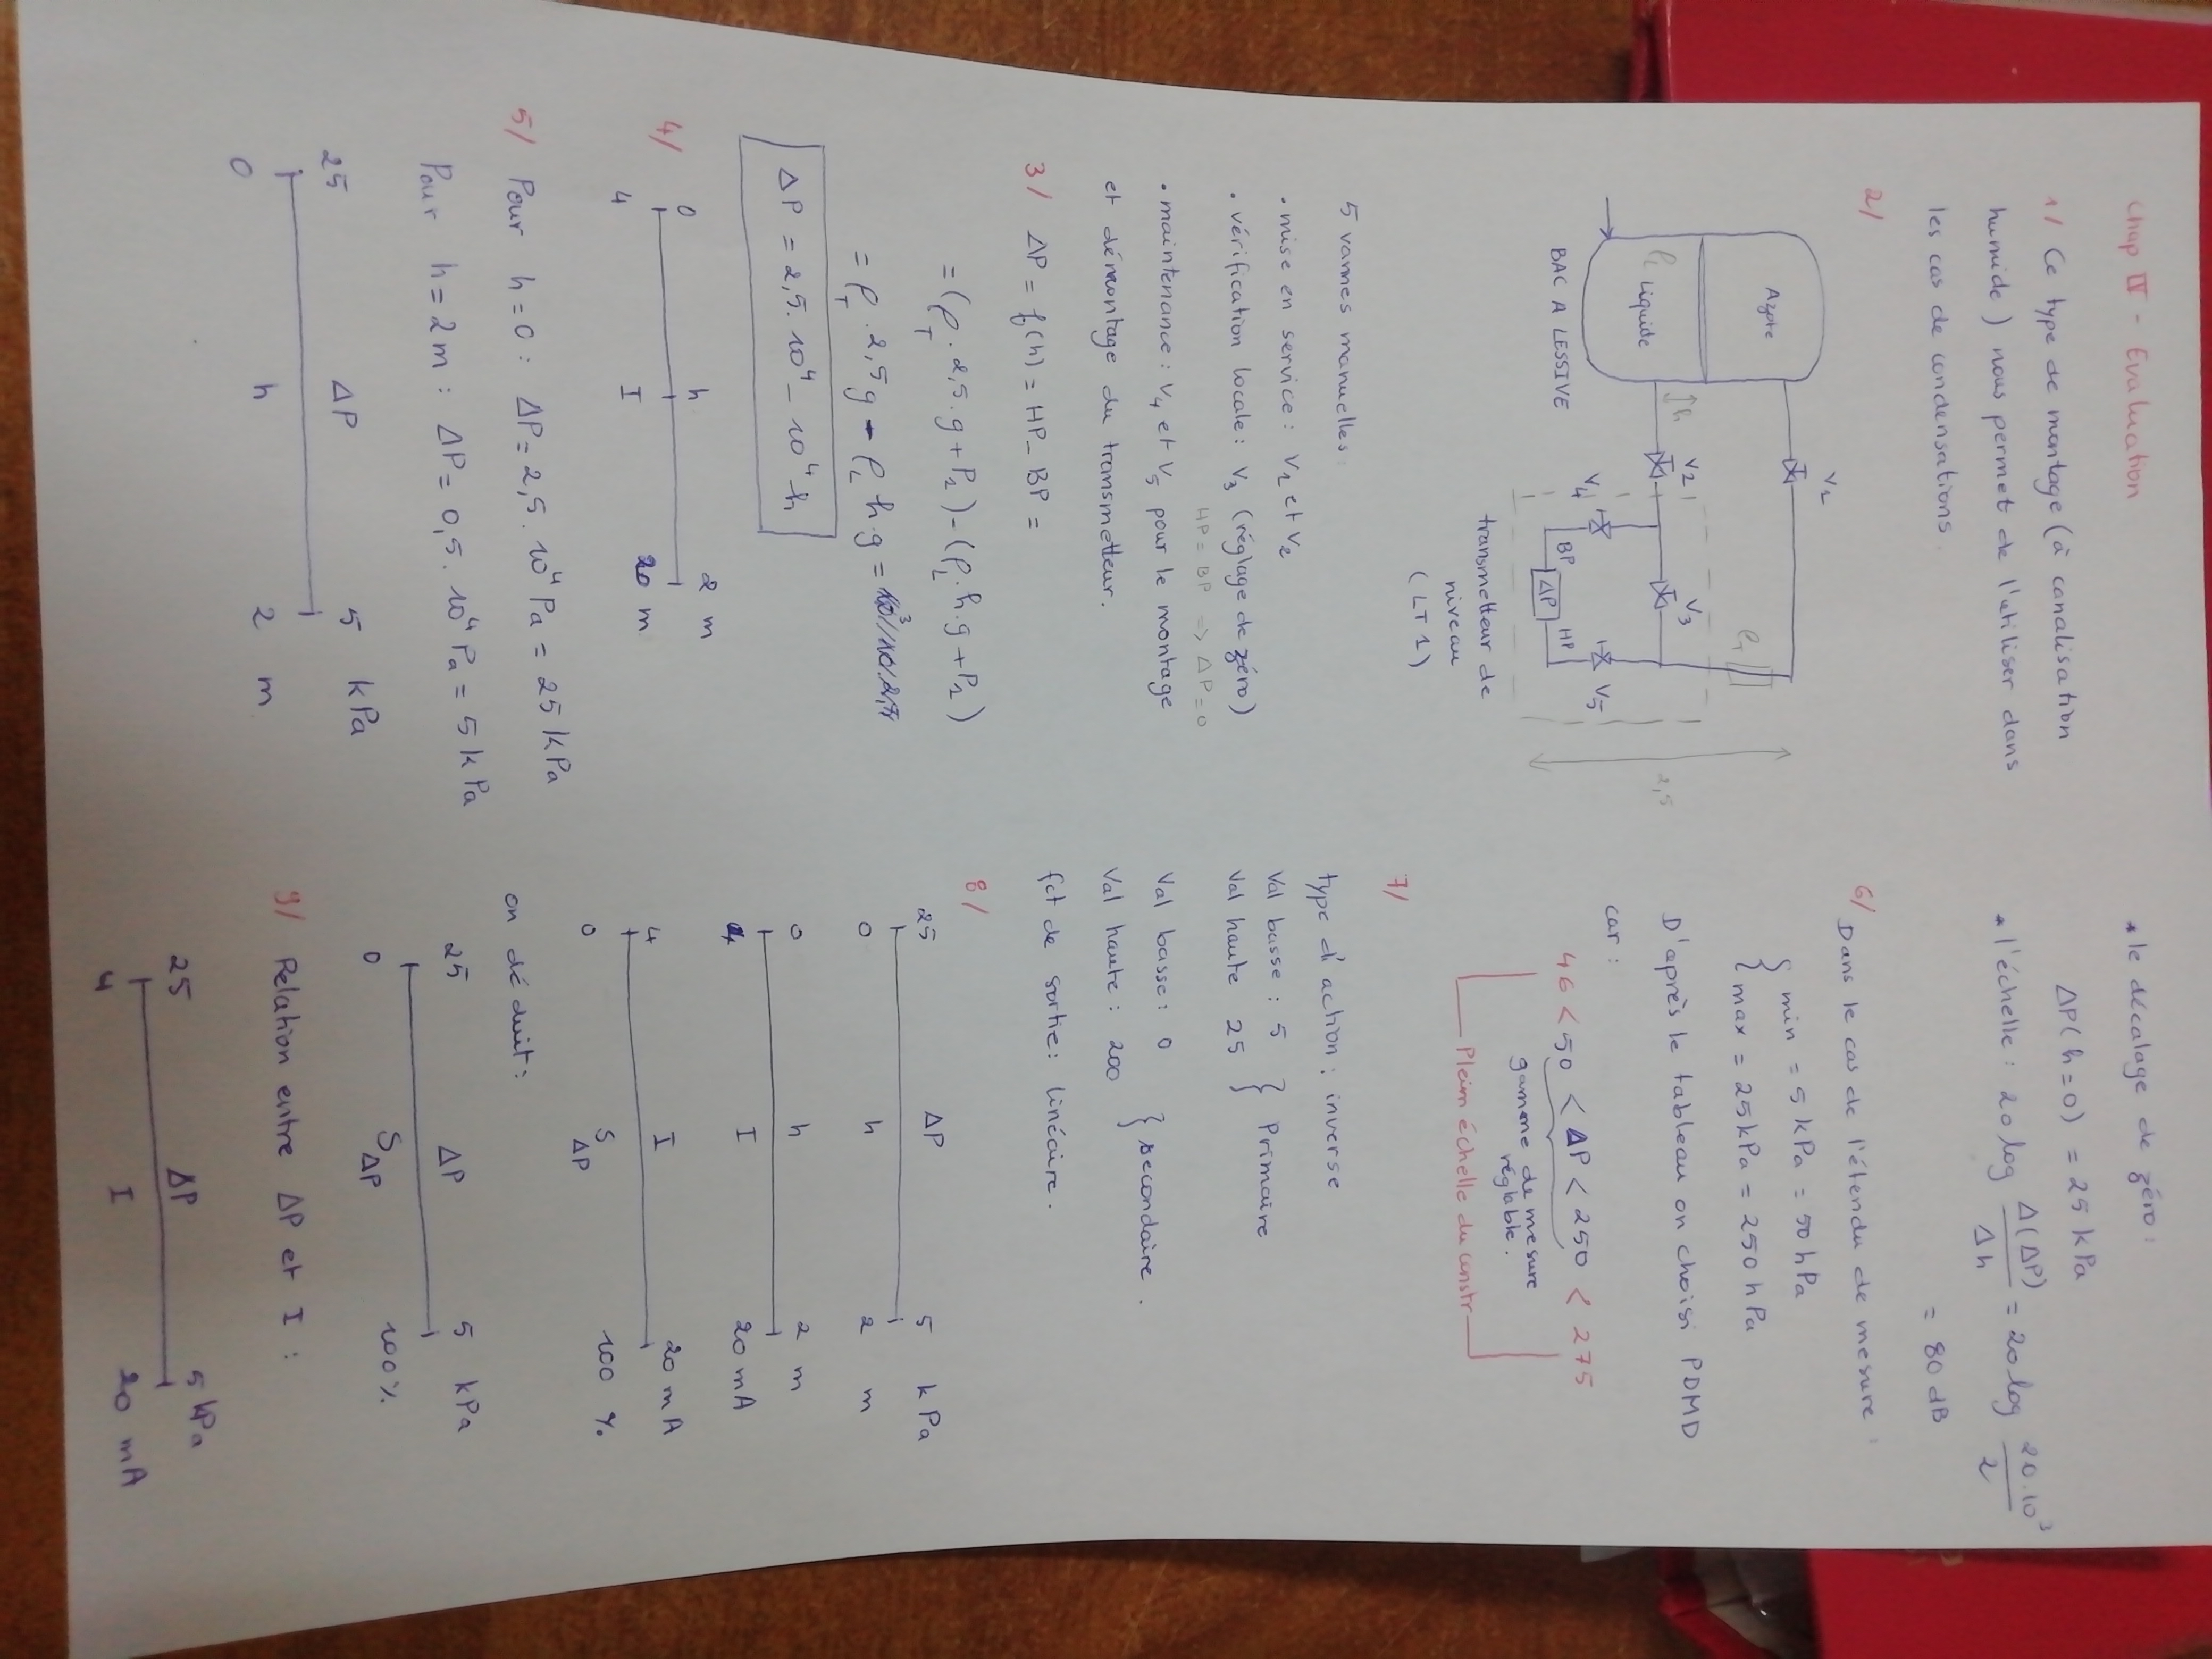 Chap IV - Evaluation
1/ Ce type de montage (à canalisation
humide) nous permet de l'utiliser dans
les cas de condensations.
2/
V1
Azote
V2
V3
ρT
h
ρL Liquide
V4
V5
BP ΔP HP
2,5
BAC A LESSIVE
transmetteur de
niveau
(LT1)
5 vannes manuelles:
• mise en service : V1 et V2
• vérification locale : V3 (réglage de zéro)
HP = BP => ΔP = 0
• maintenance : V4 et V5 pour le montage
et démontage du transmetteur.
3/ ΔP = f(h) = HP - BP =
= (ρT . 2,5 . g + P1) - (ρL . h . g + P1)
= ρT . 2,5 g - ρL h . g =
ΔP = 2,5 . 10⁴ - 10⁴ h
4/
0 h 2 m
4 I 20 m
5/ Pour h = 0 : ΔP = 2,5 . 10⁴ Pa = 25 kPa
Pour h = 2 m : ΔP = 0,5 . 10⁴ Pa = 5 kPa
25 ΔP 5 kPa
0 h 2 m
* le décalage de zéro :
ΔP(h=0) = 25 kPa
* l'échelle : 20 log Δ(ΔP)/Δh = 20 log 20.10³/2
= 80 dB
6/ Dans le cas de l'étendu de mesure :
{ min = 5 kPa = 50 hPa
{ max = 25 kPa = 250 hPa
D'après le tableau on choisi PDMD
car :
46 < 50 < ΔP < 250 < 275
gamme de mesure
réglable.
Plein échelle du constr
7/
type d'action : inverse
Val basse : 5 } Primaire
Val haute 25 }
Val basse : 0 } secondaire.
Val haute : 200
fct de sortie : linéaire.
8/
25 ΔP 5 kPa
0 h 2 m
0 h 2 m
4 I 20 mA
4 I 20 mA
0 SΔP 100 %
on déduit :
25 ΔP 5 kPa
0 SΔP 100%
9/ Relation entre ΔP et I :
25 ΔP 5 kPa
4 I 20 mA